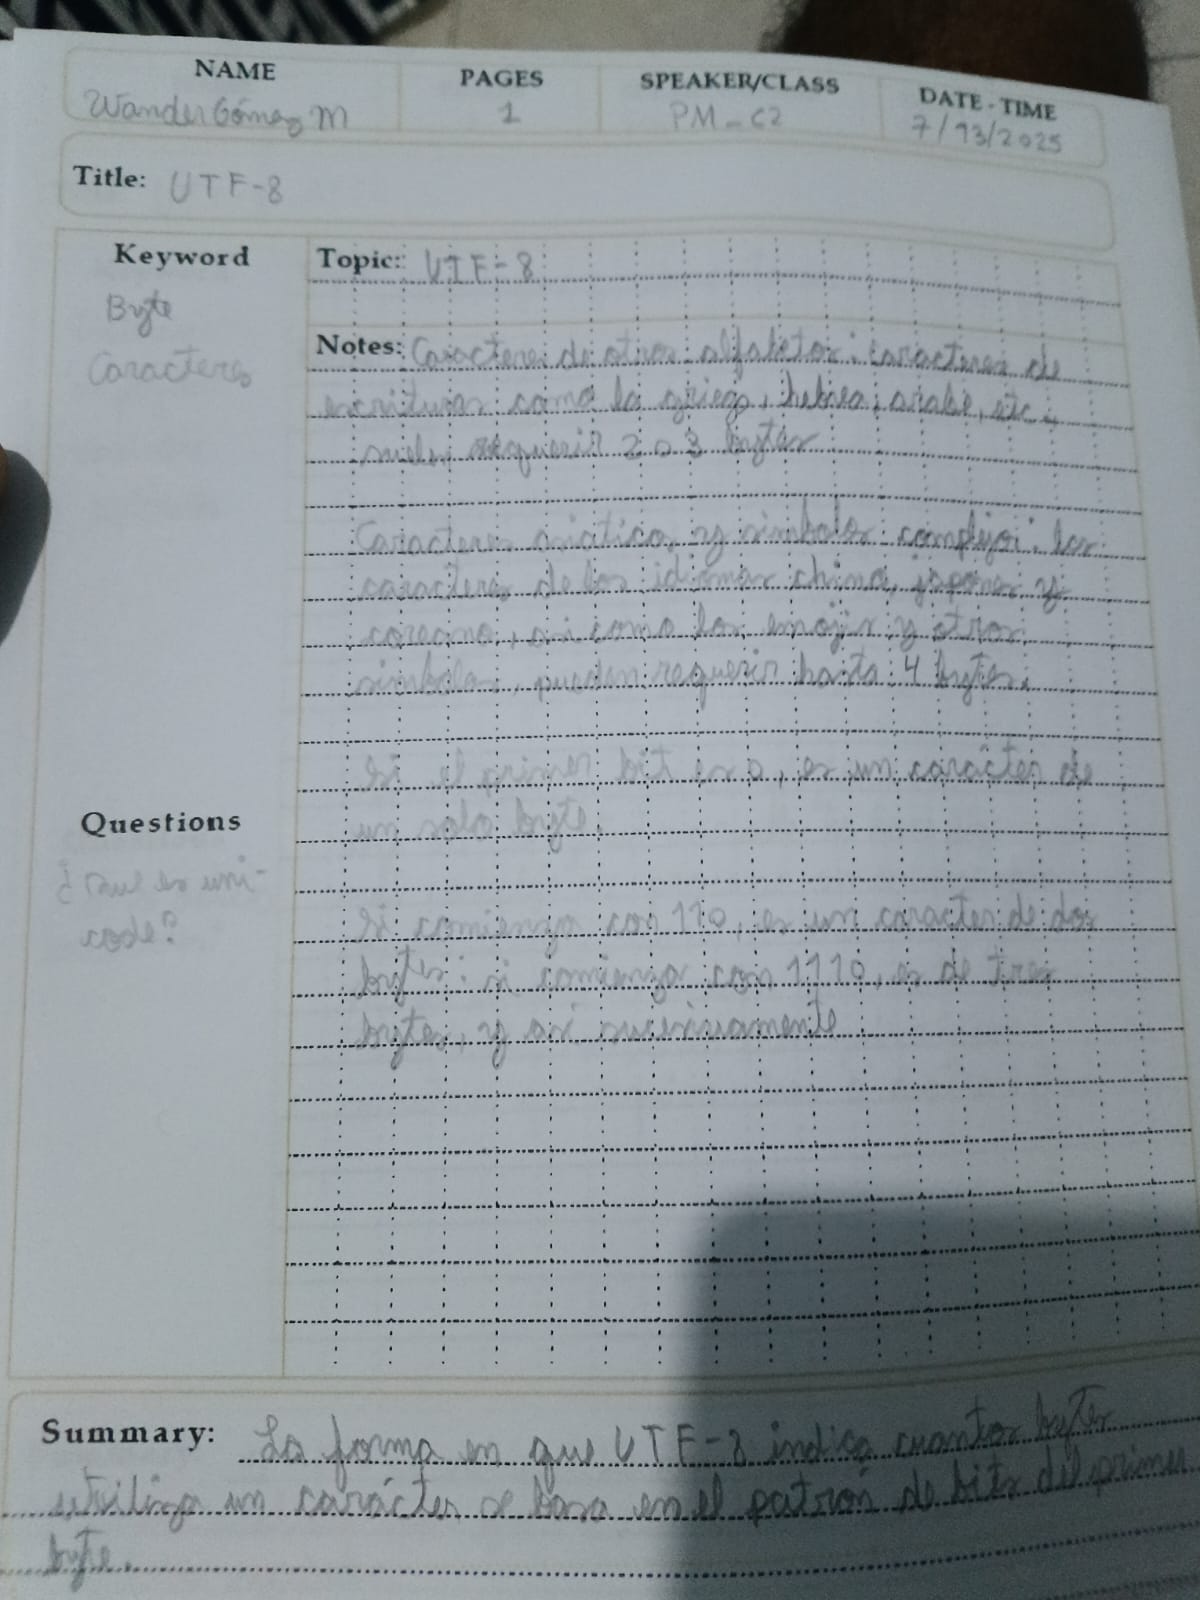 NAME
Wander Gómez M
PAGES
1
SPEAKER/CLASS
PM_C2
DATE-TIME
7/13/2025
Title: UTF-8
Keyword
Byte
Caracteres
Topic: UTF-8
Notes: Caracteres de otros alfabetos: caracteres de
escrituras como la griega, hebrea, arabe, etc.,
suelen requerir 2 o 3 bytes
Caracteres asiaticos y simbolos complejos: los
caracteres de los idiomas chino, japones y
coreano, asi como los emojis y otros
simbolos, pueden requerir hasta 4 bytes.
Si el primer bit es 0, es un carácter de
un solo byte.
Si comienza con 110, es un caracter de dos
bytes: si comienza con 1110, es de tres
bytes, y asi sucesivamente
Questions
¿Que es uni-
code?
Summary: La forma en que UTF-8 indica cuantos bytes
utiliza un carácter se basa en el patrón de bits del primer
byte.